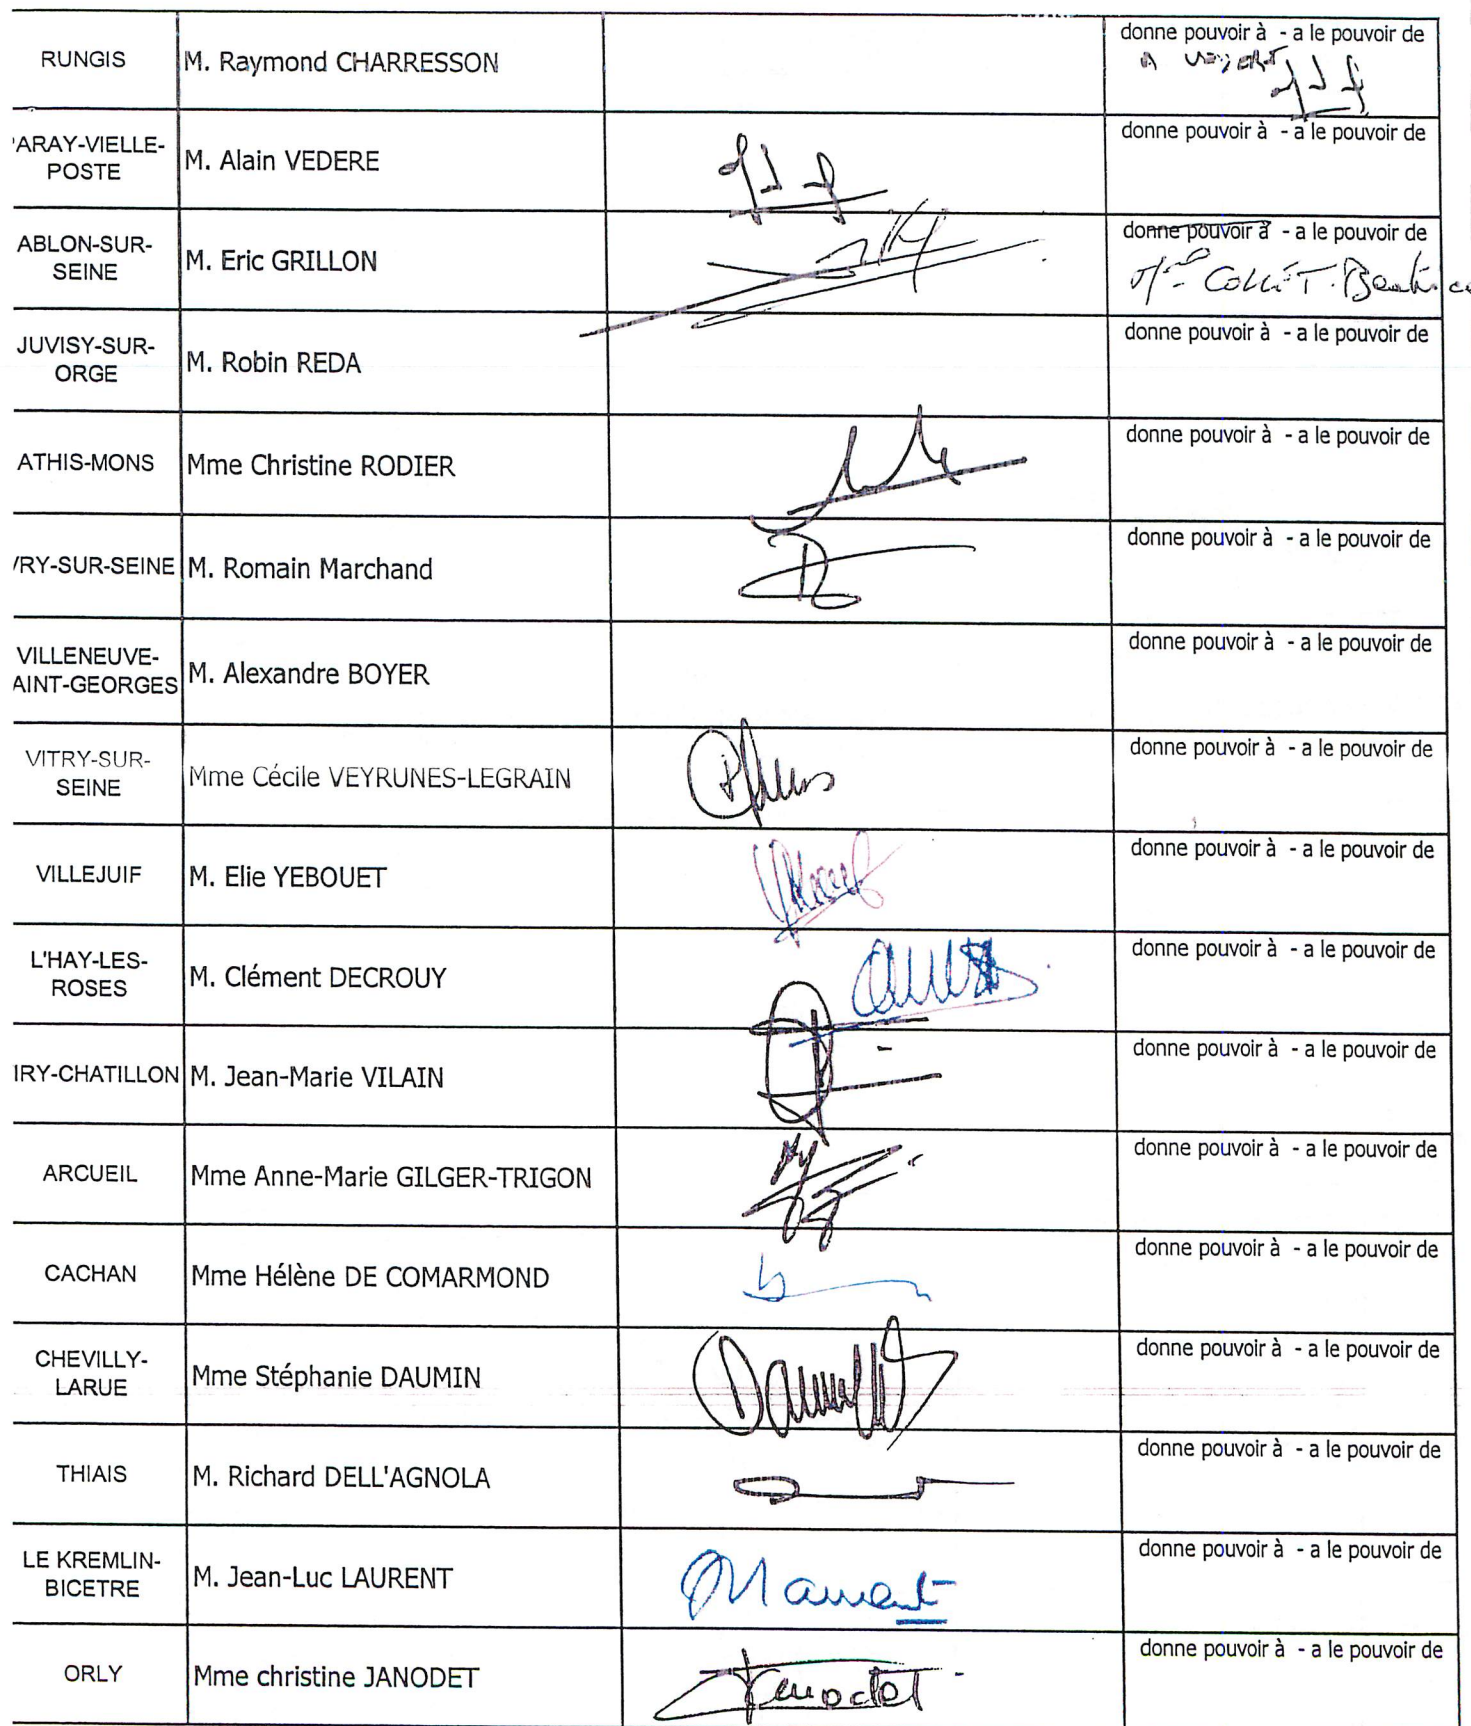 RUNGIS
M. Raymond CHARRESSON
donne pouvoir à - a le pouvoir de
'ARAY-VIELLE-
POSTE
M. Alain VEDERE
donne pouvoir à - a le pouvoir de
ABLON-SUR-
SEINE
M. Eric GRILLON
donne pouvoir à - a le pouvoir de
JUVISY-SUR-
ORGE
M. Robin REDA
donne pouvoir à - a le pouvoir de
ATHIS-MONS
Mme Christine RODIER
donne pouvoir à - a le pouvoir de
VRY-SUR-SEINE
M. Romain Marchand
donne pouvoir à - a le pouvoir de
VILLENEUVE-
AINT-GEORGES
M. Alexandre BOYER
donne pouvoir à - a le pouvoir de
VITRY-SUR-
SEINE
Mme Cécile VEYRUNES-LEGRAIN
donne pouvoir à - a le pouvoir de
VILLEJUIF
M. Elie YEBOUET
donne pouvoir à - a le pouvoir de
L'HAY-LES-
ROSES
M. Clément DECROUY
donne pouvoir à - a le pouvoir de
IRY-CHATILLON
M. Jean-Marie VILAIN
donne pouvoir à - a le pouvoir de
ARCUEIL
Mme Anne-Marie GILGER-TRIGON
donne pouvoir à - a le pouvoir de
CACHAN
Mme Hélène DE COMARMOND
donne pouvoir à - a le pouvoir de
CHEVILLY-
LARUE
Mme Stéphanie DAUMIN
donne pouvoir à - a le pouvoir de
THIAIS
M. Richard DELL'AGNOLA
donne pouvoir à - a le pouvoir de
LE KREMLIN-
BICETRE
M. Jean-Luc LAURENT
donne pouvoir à - a le pouvoir de
ORLY
Mme christine JANODET
Janodet
donne pouvoir à - a le pouvoir de